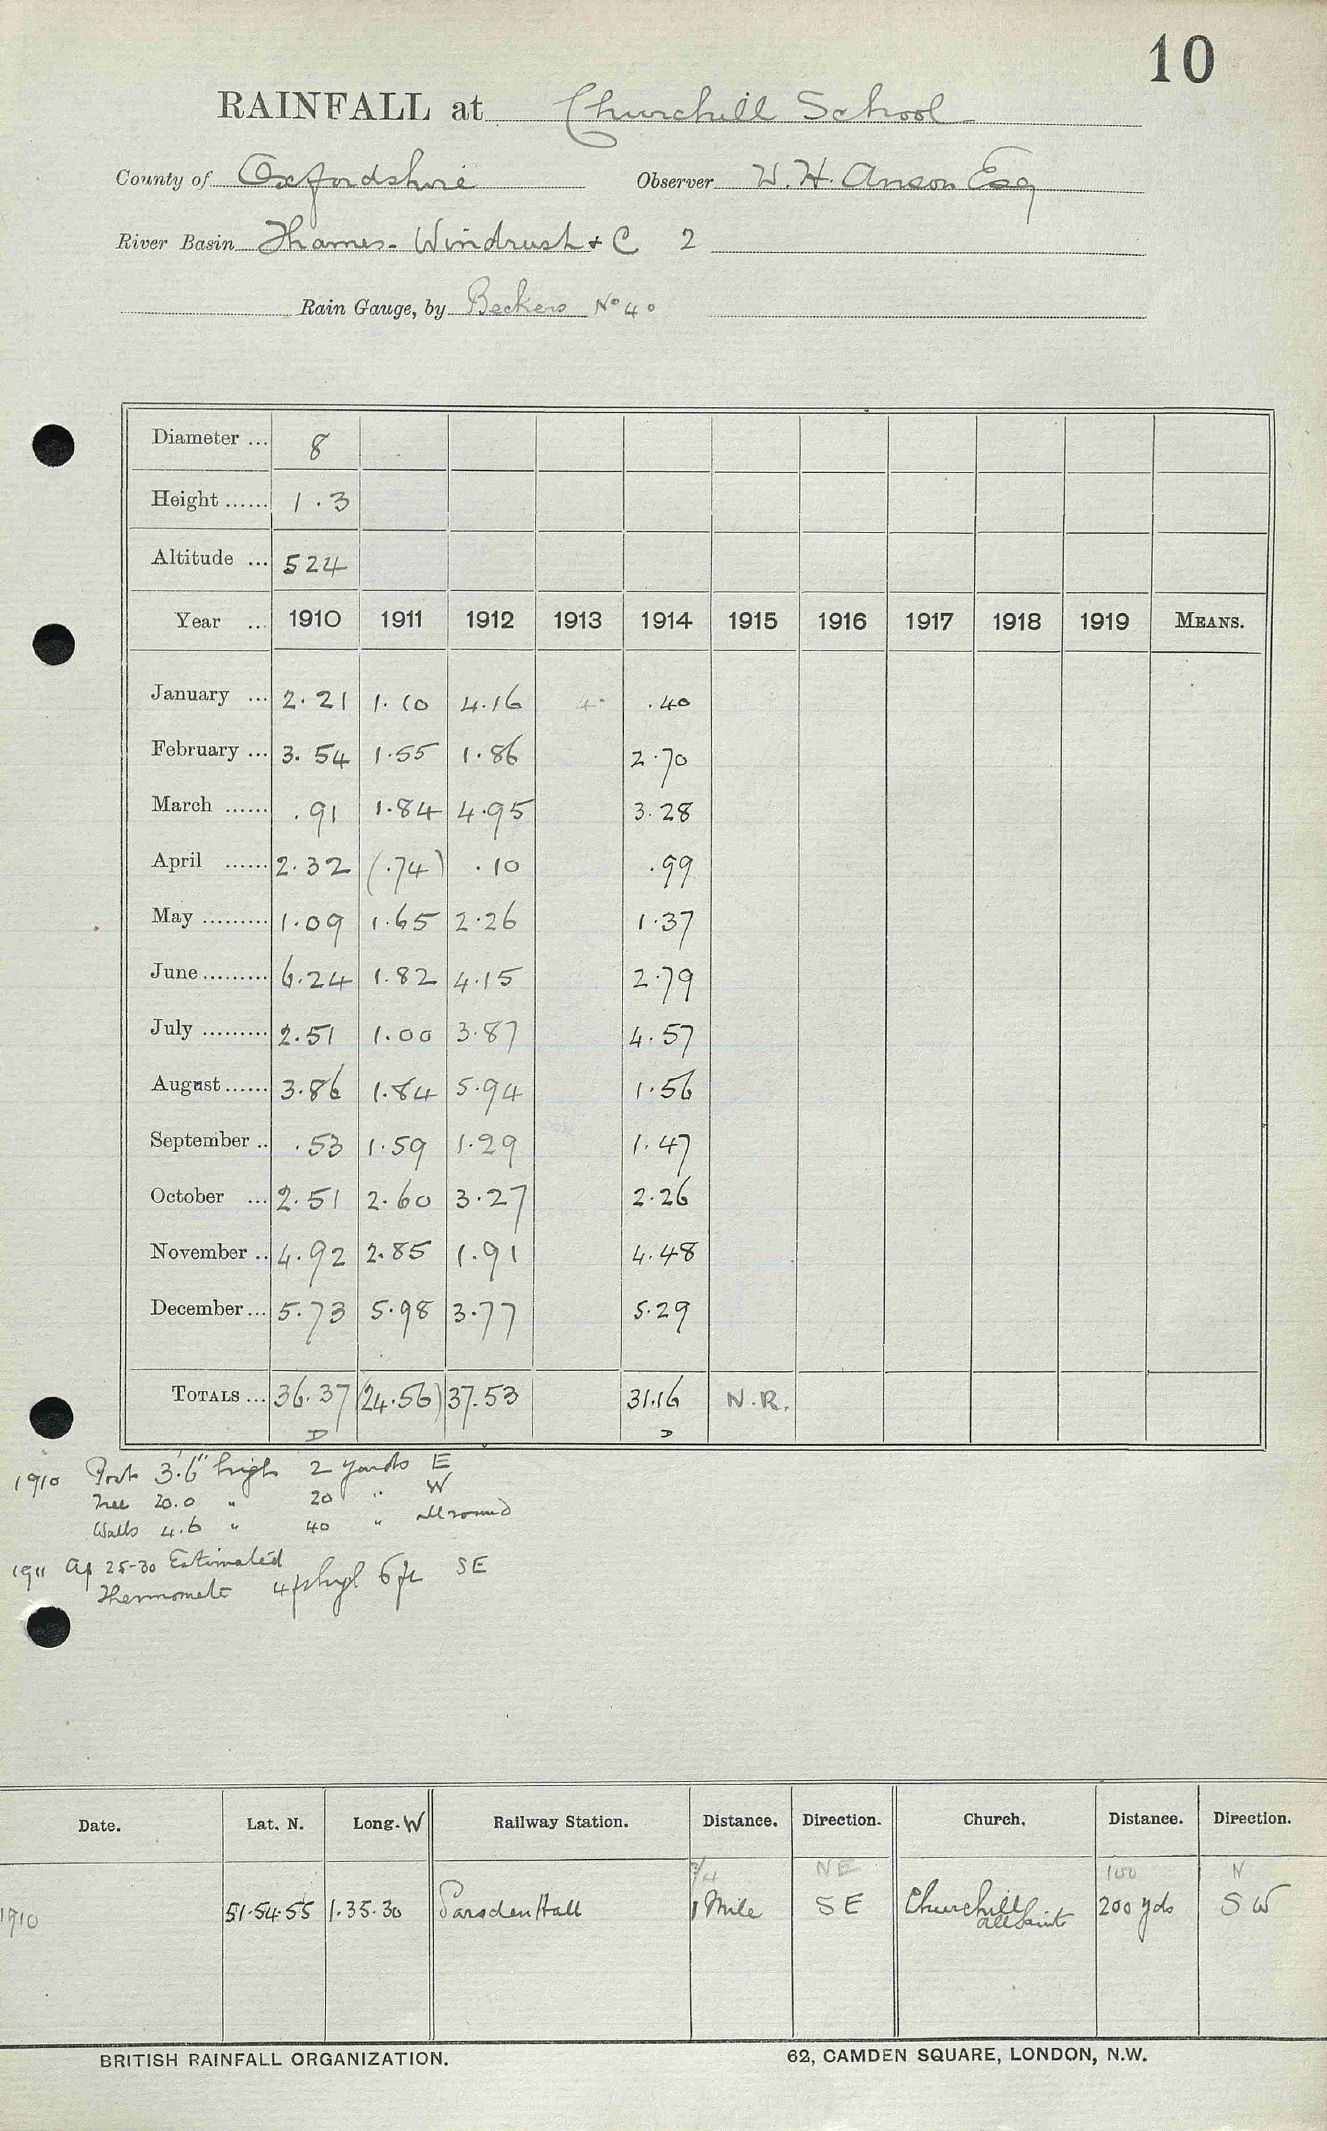 10
RAINFALL at Churchill School
County of Oxfordshire Observer W. H. Anson Esq
River Basin Thames - Windrush + C 2
Rain Gauge, by Beckers No 40
Diameter ... 8
Height ...... 1.3
Altitude ... 524
Year ... 1910 1911 1912 1913 1914 1915 1916 1917 1918 1919 MEANS.
January ... 2.21 1.10 4.16 4. .40
February ... 3.54 1.55 1.86 2.70
March ...... .91 1.84 4.95 3.28
April ...... 2.32 (.74) .10 .99
May ......... 1.09 1.65 2.26 1.37
June ......... 6.24 1.82 4.15 2.79
July ......... 2.51 1.00 3.87 4.57
August ...... 3.86 1.84 5.94 1.56
September .. .53 1.59 1.29 1.47
October ... 2.51 2.60 3.27 2.26
November .. 4.92 2.85 1.91 4.48
December ... 5.73 5.98 3.77 5.29
TOTALS ... 36.37 (24.56) 37.53 31.16 N.R.
D D
1910 Post 3'.6" high 2 yards E
Tree 20.0 " 20 " W
Walls 4.6 " 40 " all round
1911 Ap 25-30 Estimated
Thermometr 4ft high 6 ft SE
Date. Lat. N. Long. W Railway Station. Distance. Direction. Church. Distance. Direction.
3/4 NE 100 N
1910 51.54.55 1.35.30 Sarsden Halt 1 Mile SE Churchill 200 yds SW
All Saints
BRITISH RAINFALL ORGANIZATION. 62, CAMDEN SQUARE, LONDON, N.W.